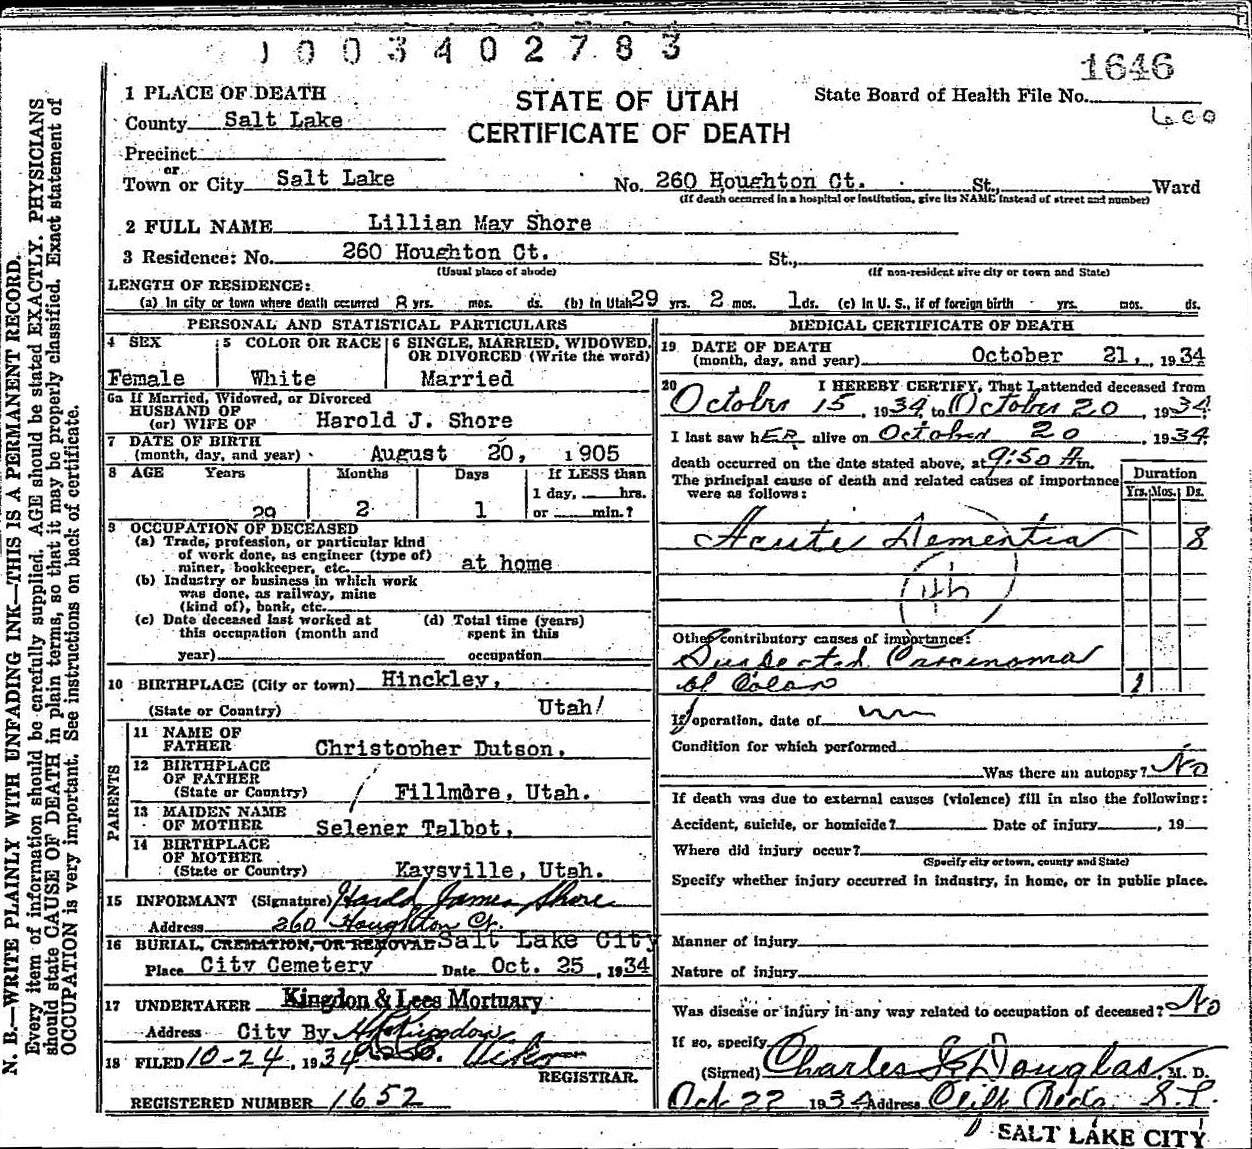 1003402783
1646
1 PLACE OF DEATH
STATE OF UTAH
State Board of Health File No.
County Salt Lake
CERTIFICATE OF DEATH
Precinct
or
Town or City Salt Lake No. 260 Houghton Ct. St., Ward
(If death occurred in a hospital or institution, give its NAME instead of street and number)
2 FULL NAME Lillian May Shore
3 Residence: No. 260 Houghton Ct. St.,
(Usual place of abode) (If non-resident give city or town and State)
LENGTH OF RESIDENCE:
(a) In city or town where death occurred 8 yrs. mos. ds. (b) In Utah 29 yrs. 2 mos. 1 ds. (c) In U. S., if of foreign birth yrs. mos. ds.
PERSONAL AND STATISTICAL PARTICULARS
4 SEX
Female
5 COLOR OR RACE
White
6 SINGLE, MARRIED, WIDOWED,
OR DIVORCED (Write the word)
Married
6a If Married, Widowed, or Divorced
HUSBAND OF
(or) WIFE OF Harold J. Shore
7 DATE OF BIRTH
(month, day, and year) August 20, 1905
8 AGE Years Months Days If LESS than
1 day, hrs.
29 2 1 or min.?
9 OCCUPATION OF DECEASED
(a) Trade, profession, or particular kind
of work done, as engineer (type of)
miner, bookkeeper, etc. at home
(b) Industry or business in which work
was done, as railway, mine
(kind of), bank, etc.
(c) Date deceased last worked at
this occupation (month and
year)
(d) Total time (years)
spent in this
occupation
10 BIRTHPLACE (City or town) Hinckley,
(State or Country) Utah
PARENTS
11 NAME OF
FATHER Christopher Dutson.
12 BIRTHPLACE
OF FATHER
(State or Country) Fillmore, Utah.
13 MAIDEN NAME
OF MOTHER Selener Talbot.
14 BIRTHPLACE
OF MOTHER
(State or Country) Kaysville, Utah.
15 INFORMANT (Signature) Harold James Shore
Address 260 Houghton Ct.
16 BURIAL, CREMATION, OR REMOVAL Salt Lake City
Place City Cemetery Date Oct. 25, 1934
17 UNDERTAKER Kingdon & Lees Mortuary
Address City By
18 FILED 10-24, 1934
REGISTRAR.
REGISTERED NUMBER 1652
MEDICAL CERTIFICATE OF DEATH
19 DATE OF DEATH
(month, day, and year) October 21, 1934
20 I HEREBY CERTIFY, That I attended deceased from
October 15, 1934, to October 20, 1934
I last saw hER alive on October 20, 1934
death occurred on the date stated above, at 9:50 A m.
The principal cause of death and related causes of importance
were as follows:
Duration
Yrs. Mos. Ds.
Acute Dementia 8
Other contributory causes of importance:
Suspected Carcinoma
of Colon 1
If operation, date of
Condition for which performed
Was there an autopsy? No
If death was due to external causes (violence) fill in also the following:
Accident, suicide, or homicide? Date of injury , 19
Where did injury occur?
(Specify city or town, county and State)
Specify whether injury occurred in industry, in home, or in public place.
Manner of injury
Nature of injury
Was disease or injury in any way related to occupation of deceased? No
If so, specify
(Signed) Charles G Douglas, M. D.
Oct 22 1934 Address Clift Bldg. S.L.
SALT LAKE CITY
N. B.—WRITE PLAINLY WITH UNFADING INK—THIS IS A PERMANENT RECORD.
Every item of information should be carefully supplied. AGE should be stated EXACTLY. PHYSICIANS
should state CAUSE OF DEATH in plain terms, so that it may be properly classified. Exact statement of
OCCUPATION is very important. See instructions on back of certificate.